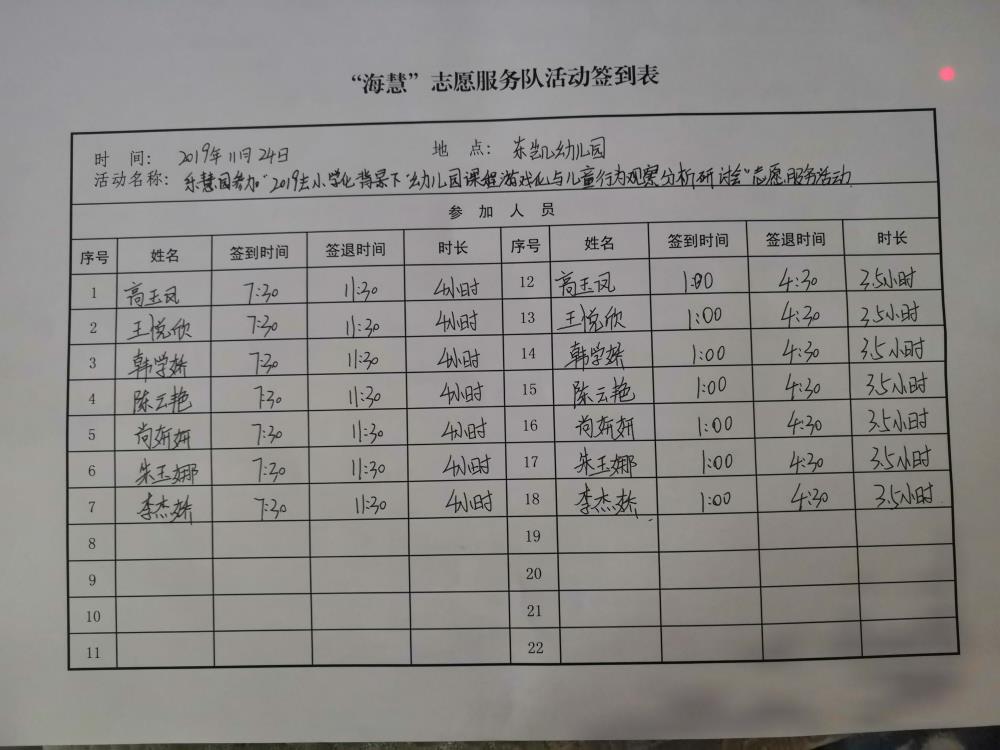 “海慧”志愿服务队活动签到表
时 间: 2019年11月24日 地 点: 东凯幼儿园
活动名称: 乐慧园参加“2019去小学化背景下”幼儿园课程游戏化与儿童行为观察分析研讨会”志愿服务活动
参 加 人 员
序号 姓名 签到时间 签退时间 时长 序号 姓名 签到时间 签退时间 时长
1 高玉凤 7:30 11:30 4小时 12 高玉凤 1:00 4:30 3.5小时
2 王悦欣 7:30 11:30 4小时 13 王悦欣 1:00 4:30 3.5小时
3 韩学娇 7:30 11:30 4小时 14 韩学娇 1:00 4:30 3.5小时
4 陈云艳 7:30 11:30 4小时 15 陈云艳 1:00 4:30 3.5小时
5 尚妍妍 7:30 11:30 4小时 16 尚妍妍 1:00 4:30 3.5小时
6 朱玉娜 7:30 11:30 4小时 17 朱玉娜 1:00 4:30 3.5小时
7 李杰娇 7:30 11:30 4小时 18 李杰娇 1:00 4:30 3.5小时
8 19
9 20
10 21
11 22